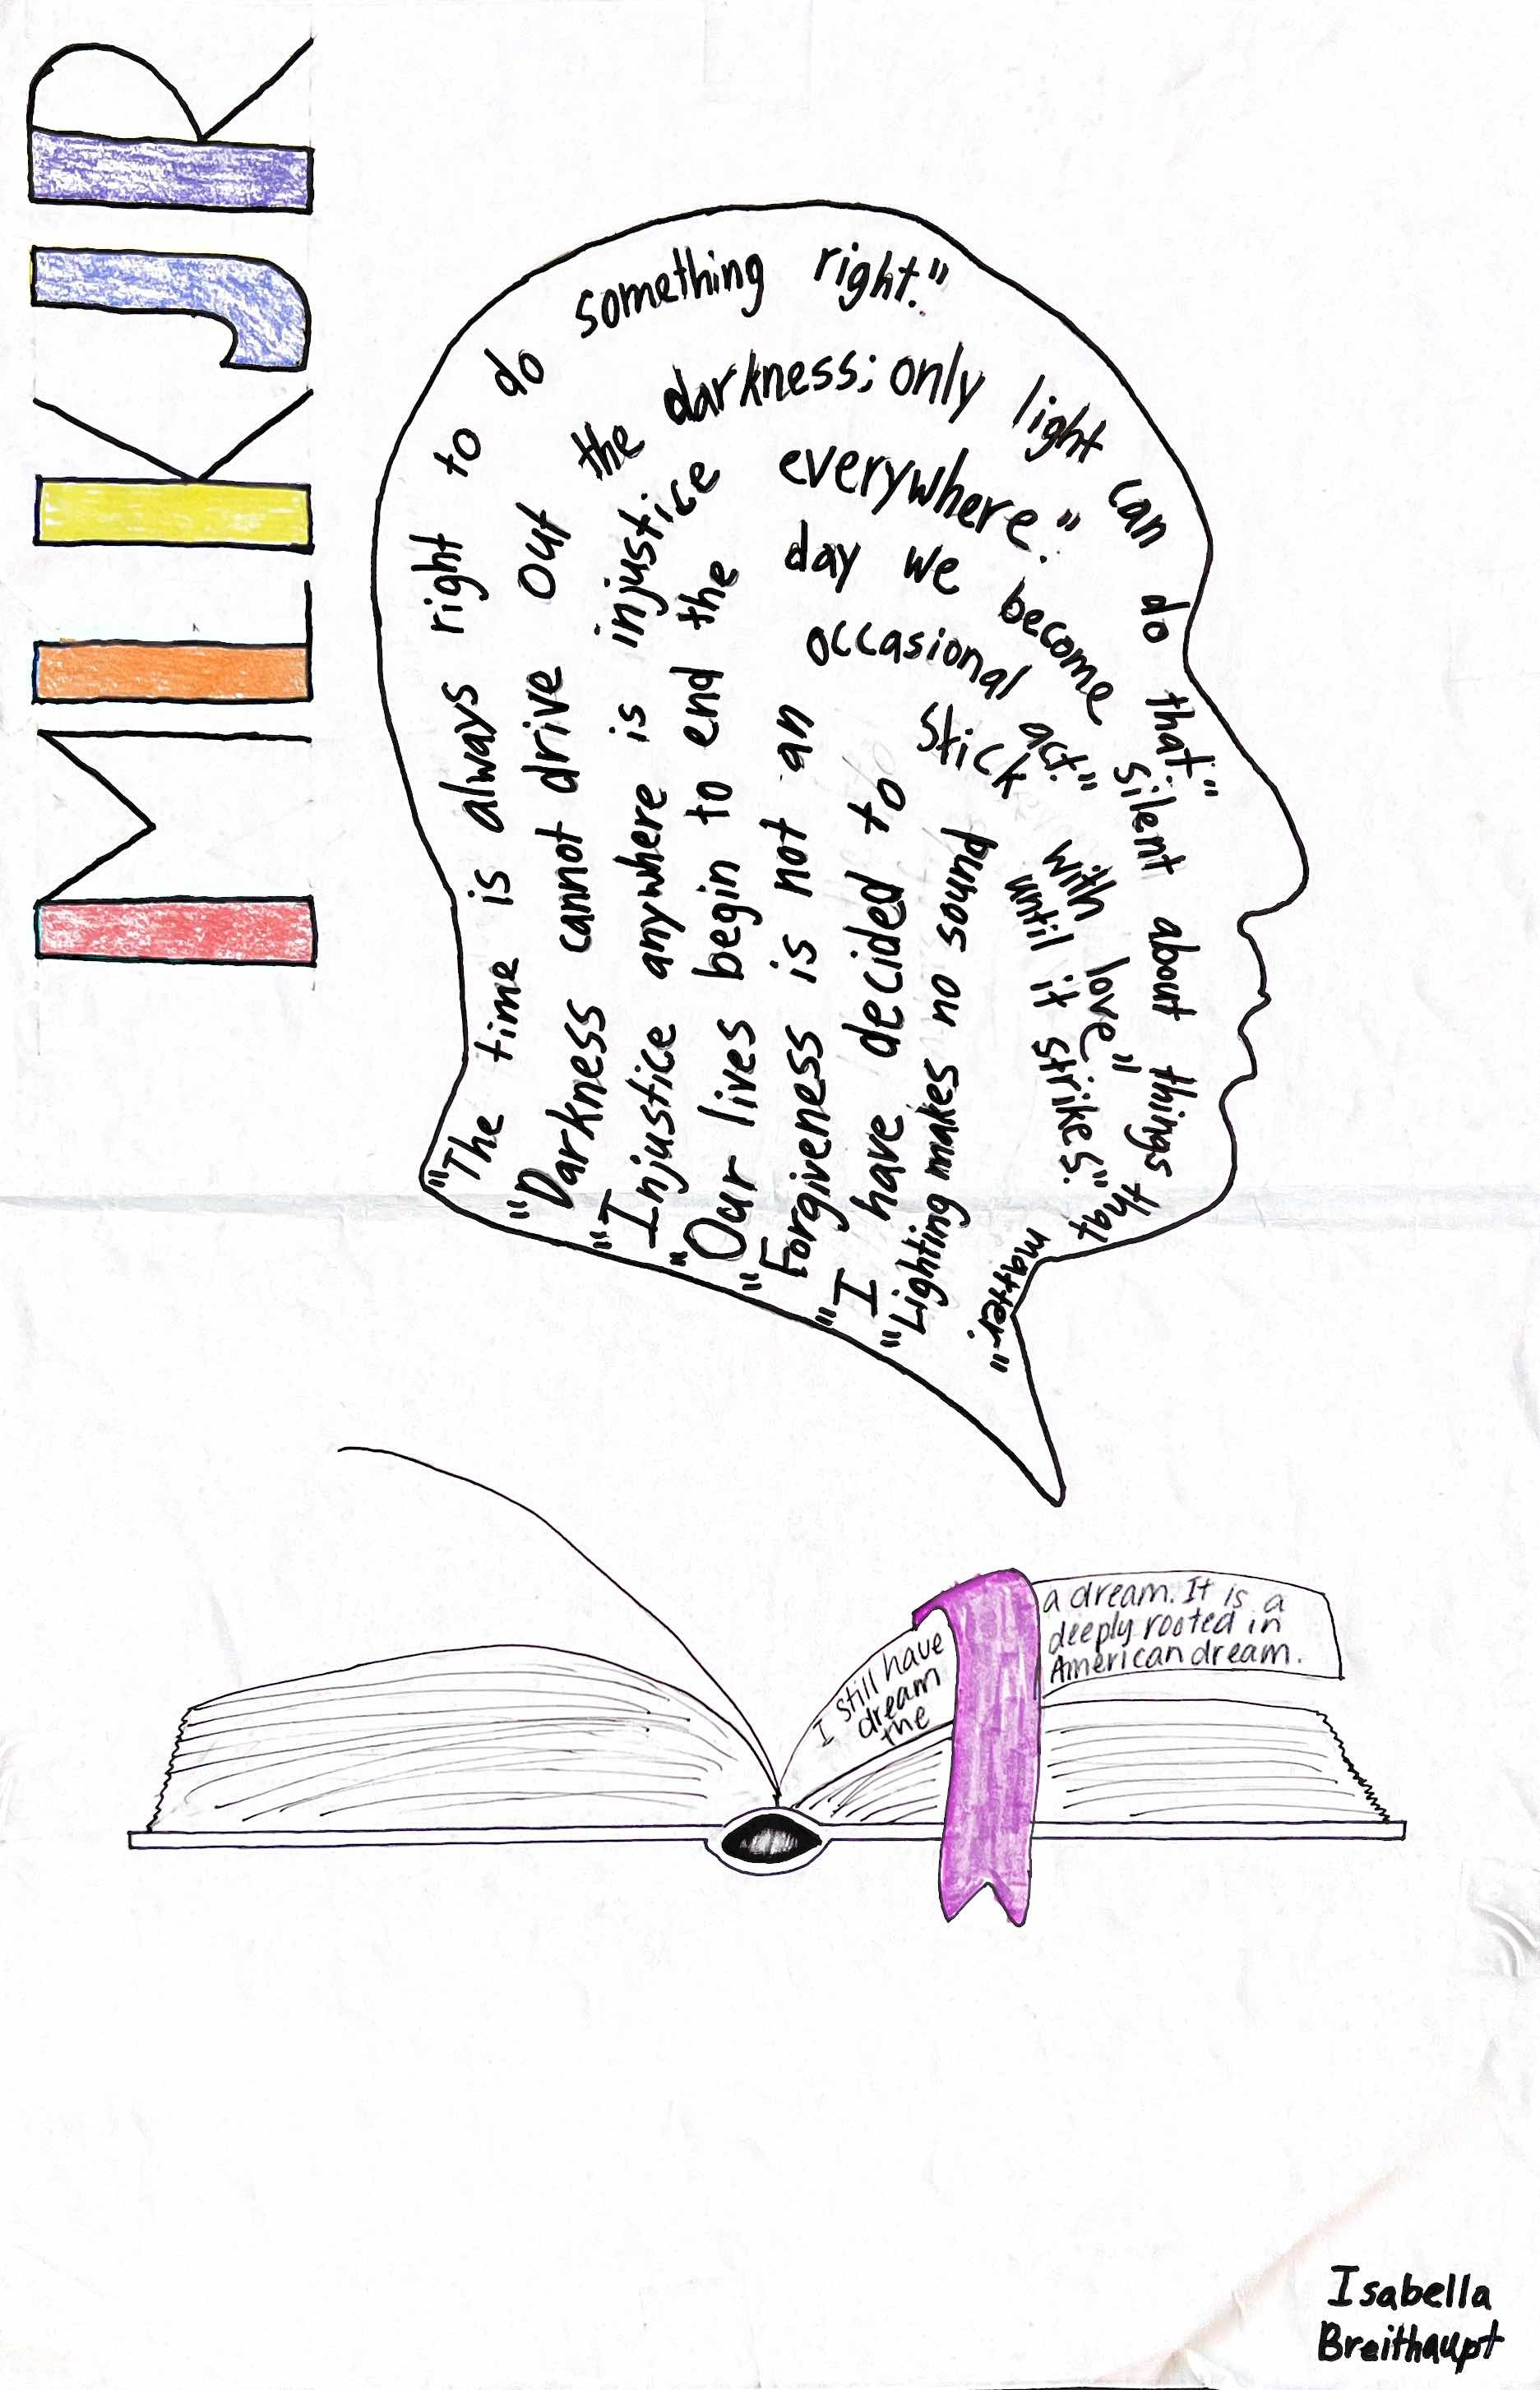 MLK JR
"The time is always right to do something right."
"Darkness cannot drive out the darkness; only light can do that"
"Injustice anywhere is injustice everywhere."
"Our lives begin to end the day we become silent about things that matter."
"Forgiveness is not an occasional act."
"I have decided to stick with love"
"Lighting makes no sound until it strikes."
I still have a dream. It is a
dream deeply rooted in
the American dream.
Isabella
Breithaupt